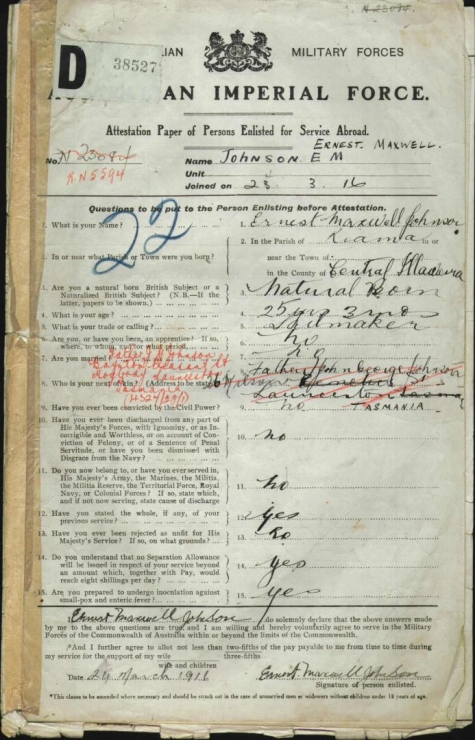 D
38527
LIAN MILITARY FORCES
AN IMPERIAL FORCE.
Attestation Paper of Persons Enlisted for Service Abroad.
ERNEST. MAXWELL.
No. N 23084
RN5594
Name JOHNSON E M
Unit
Joined on 28. 3. 16
Questions to be put to the Person Enlisting before Attestation.
22
1. What is your Name? 1. Ernest Maxwell Johnson
2. In or near what Parish or Town were you born? 2. In the Parish of Kiama in or
near the Town of
in the County of Central Illawarra
3. Are you a natural born British Subject or a
Naturalized British Subject? (N.B.—If the
latter, papers to be shown.) 3. Natural Born
4. What is your age? 4. 25 yrs 3 mos
5. What is your trade or calling? 5.
6. Are you, or have you been, an apprentice? If so,
where, to whom, and for what period 6. no
7. Are you married? 7. no
Father J G Johnson
Tasmania
8. Who is your next of kin? (Address to be stated) 8. Father John George Johnson
Launceston
TASMANIA
9. Have you ever been convicted by the Civil Power? 9. no
10. Have you ever been discharged from any part of
His Majesty's Forces, with Ignominy, or as In-
corrigible and Worthless, or on account of Con-
viction of Felony, or of a Sentence of Penal
Servitude, or have you been dismissed with
Disgrace from the Navy? 10. no
11. Do you now belong to, or have you ever served in,
His Majesty's Army, the Marines, the Militia,
the Militia Reserve, the Territorial Force, Royal
Navy, or Colonial Forces? If so, state which,
and if not now serving, state cause of discharge 11. no
12. Have you stated the whole, if any, of your
previous service? 12. yes
13. Have you ever been rejected as unfit for His
Majesty's Service? If so, on what grounds? 13. no
14. Do you understand that no Separation Allowance
will be issued in respect of your service beyond
an amount which, together with Pay, would
reach eight shillings per day? 14. yes
15. Are you prepared to undergo inoculation against
small-pox and enteric fever? 15. yes
I, Ernest Maxwell Johnson do solemnly declare that the above answers made
by me to the above questions are true, and I am willing and hereby voluntarily agree to serve in the Military
Forces of the Commonwealth of Australia within or beyond the limits of the Commonwealth.
*And I further agree to allot not less than two-fifths of the pay payable to me from time to time during
three-fifths
my service for the support of my wife
wife and children
Date 29 March 1916 Ernest Maxwell Johnson
Signature of person enlisted.
*This clause to be amended where necessary and should be struck out in the case of unmarried men or widowers without children under 18 years of age.